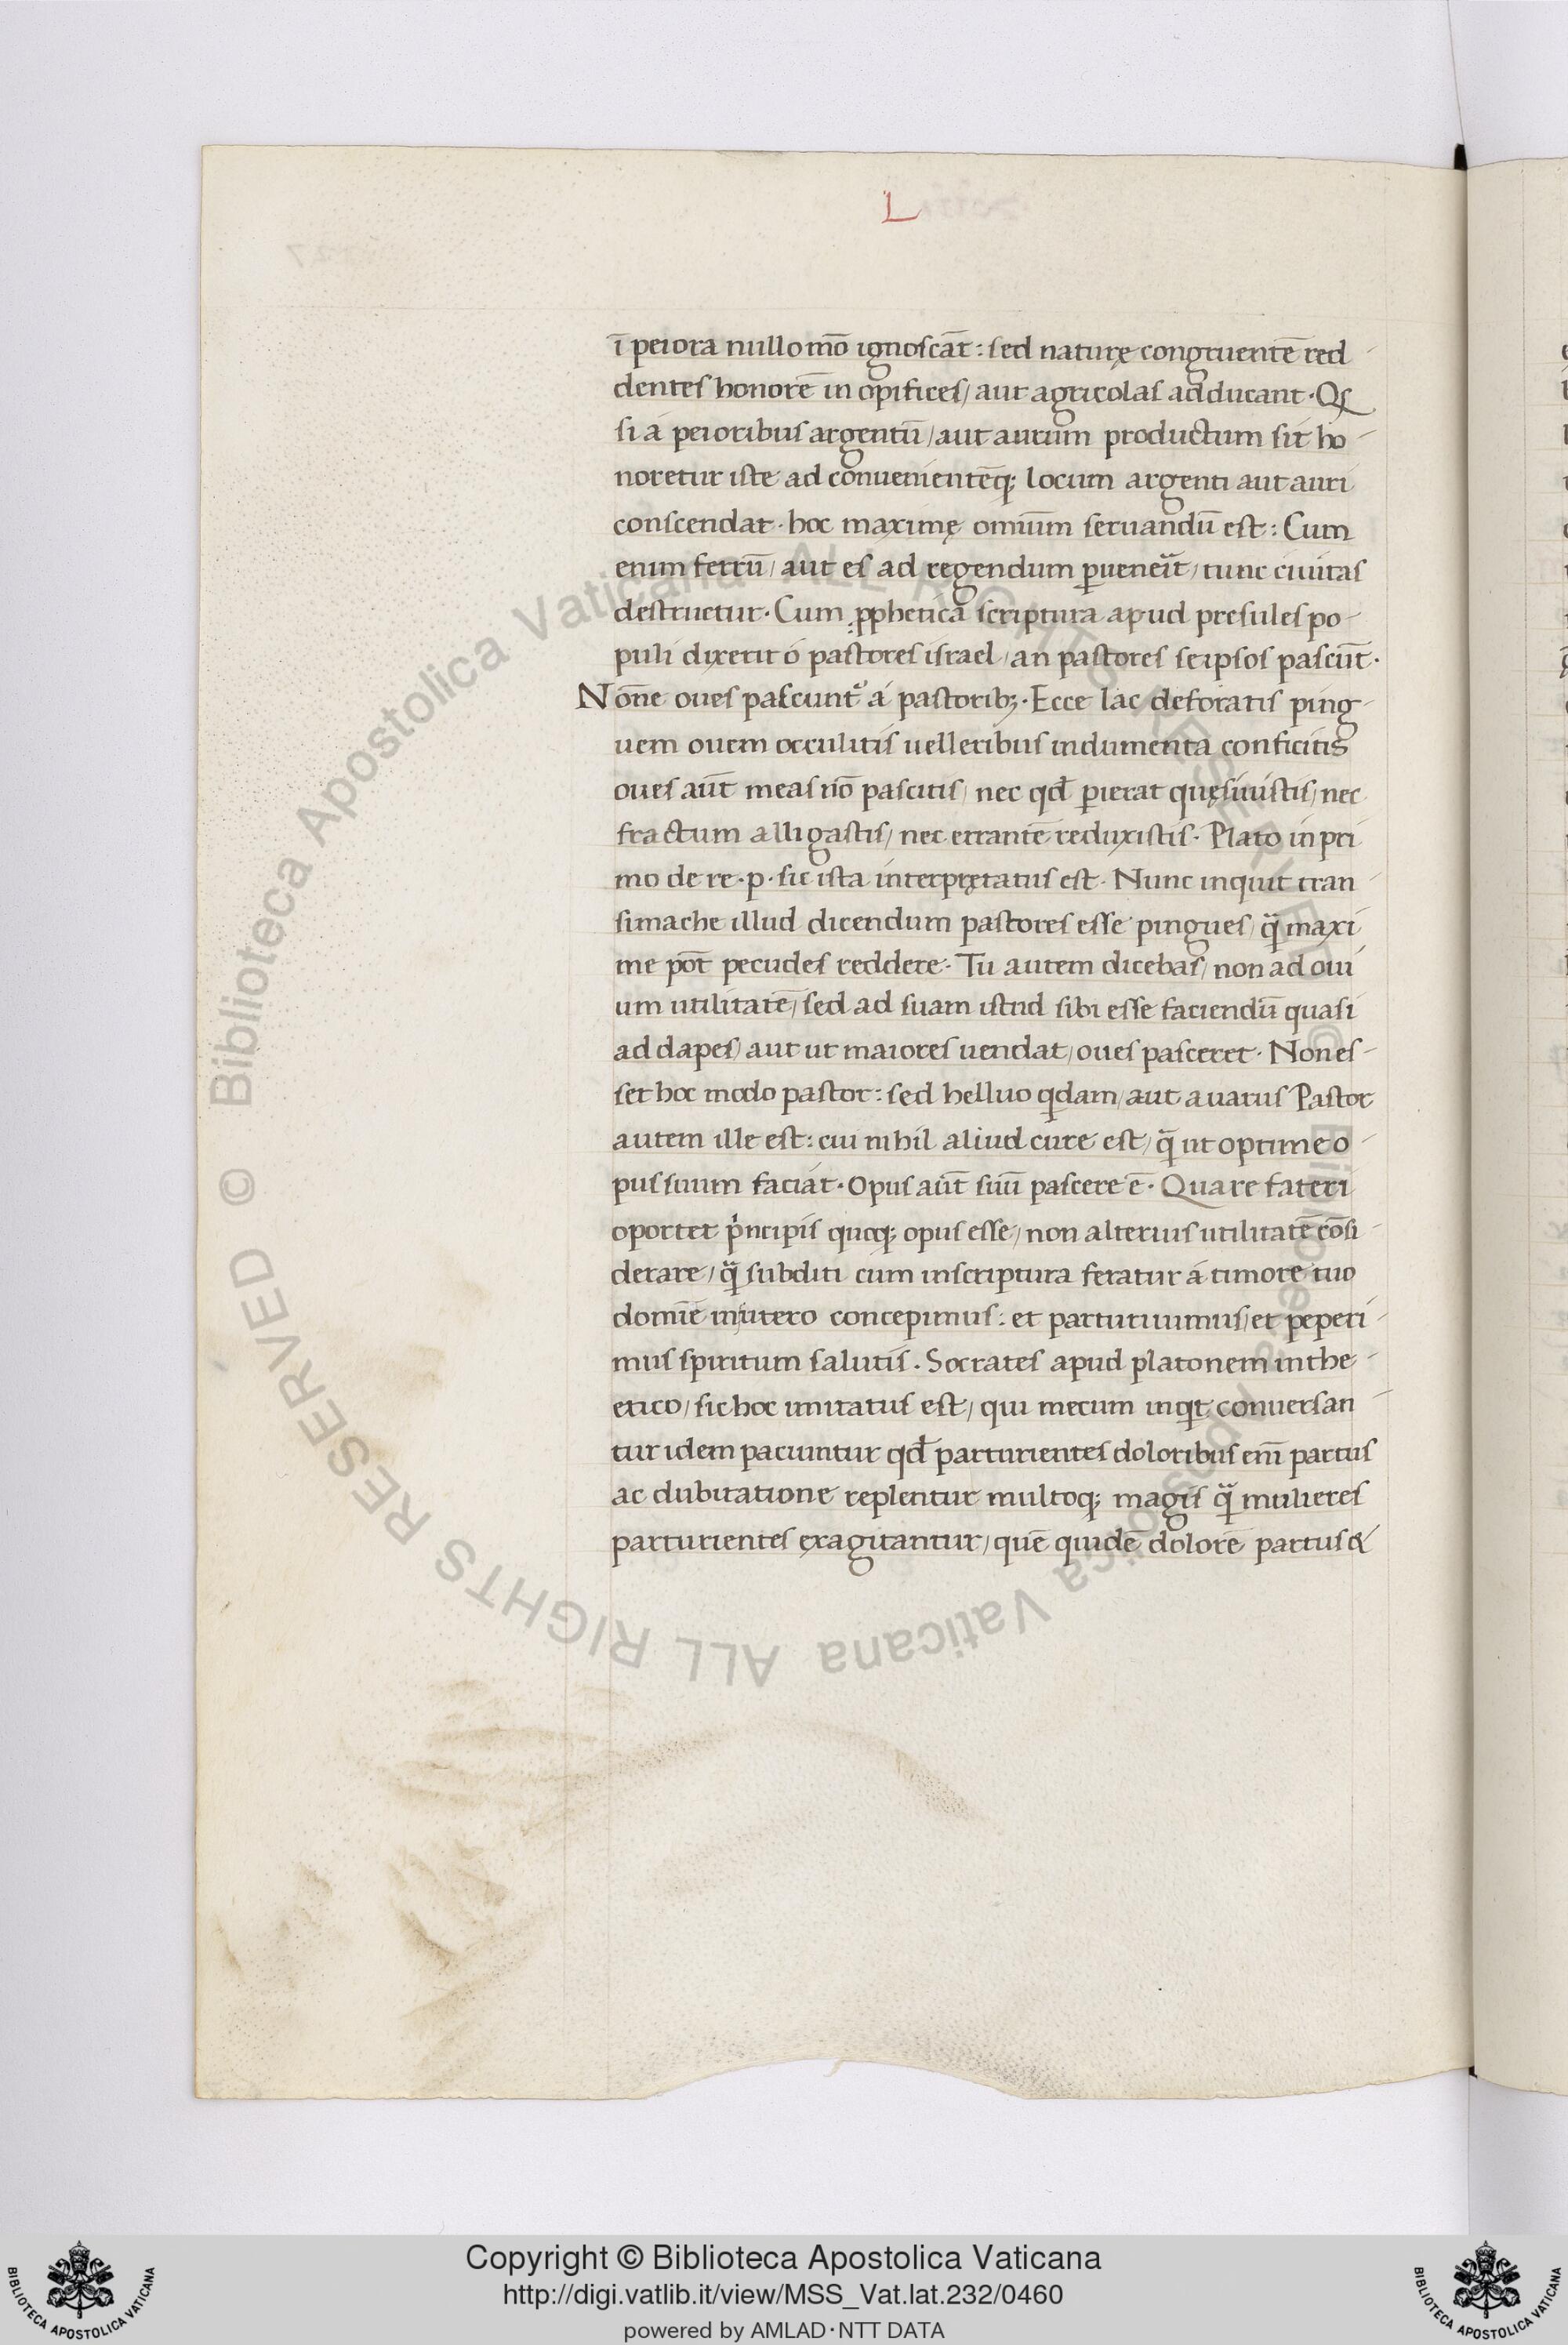 L
ī peiora nullo mō ignoscāt: sed naturę congruentē red
dentes honorē in opifices/ aut agricolas adducant. Qꝫ
si á peioribus argentū/ aut aurum productum sit ho-
noretur iste ad conuenientēq; locum argenti aut auri
conscendat. hoc maximę omīum seruandū est: Cum
enim ferrū/ aut es ad regendum ꝑueneūt/ tunc ciuitas
destruetur. Cum ꝓphetica scriptura apud presules po-
puli dixerit ó pastores israel/ an pastores seipsos pascūt.
Nōne oues pascunt᷑ á pastoribꝫ. Ecce lac deforatis ping-
uem ouem occulitis uelleribus indumenta conficitis
oues aūt meas nō pascitis/ nec qd̄ ꝑierat quęsiuistis/ nec
fractum alligastis/ nec errantē reduxistis. Plato in pri
mo de re.p. sic ista interpretatus est. Nunc inquit tran-
simache illud dicendum pastores esse pingues/ q̄ maxi
me pōt pecudes reddere. Tu autem dicebas/ non ad oui
um utilitatē/ sed ad suam istud sibi esse faciendū quasi
ad dapes/ aut ut maiores uendat/ oues pasceret. Non es-
set hoc modo pastor: sed helluo qdam/ aut auarus Pastor
autem ille est: cui nihil aliud cure est/ q̄ ut optime o-
pus suum faciat. Opus aūt suū pascere ē. Quare fateri
oportet pͥncipis quoq; opus esse/ non alterius utilitatē cōsi-
derare/ q̄ subditi cum inscriptura feratur á timore tuo
domīe in/utero concepimus: et parturiuimus/ et peperi-
mus spiritum salutis. Socrates apud platonem in the-
etico/ sic hoc imitatus est/ qui mecum inqͥt conuersan-
tur idem paciuntur qd̄ parturientes doloribus enī partus
ac dubitatione replentur multoq; magis q̄ mulieres
parturientes exagitantur/ quē quidē dolorē partus &
Biblioteca Apostolica Vaticana ALL RIGHTS RESERVED ©
Biblioteca Apostolica Vaticana ALL RIGHTS RESERVED ©
Copyright © Biblioteca Apostolica Vaticana
http://digi.vatlib.it/view/MSS_Vat.lat.232/0460
powered by AMLAD·NTT DATA
BIBLIOTECA APOSTOLICA VATICANA
BIBLIOTECA APOSTOLICA VATICANA